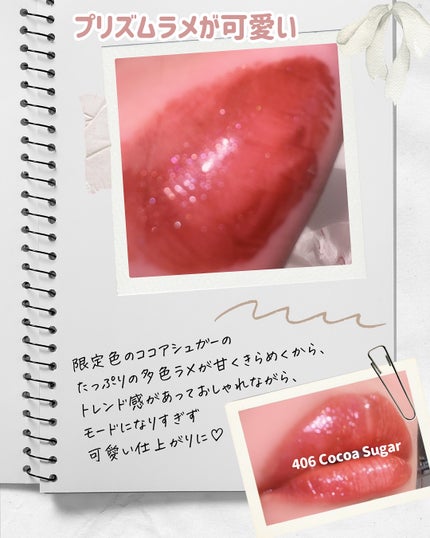 プリズムラメが可愛い
限定色のココアシュガーの
たっぷりの多色ラメが甘くきらめくから、
トレンド感があっておしゃれながら、
モードになりすぎず
可愛い仕上がりに♡
406 Cocoa Sugar